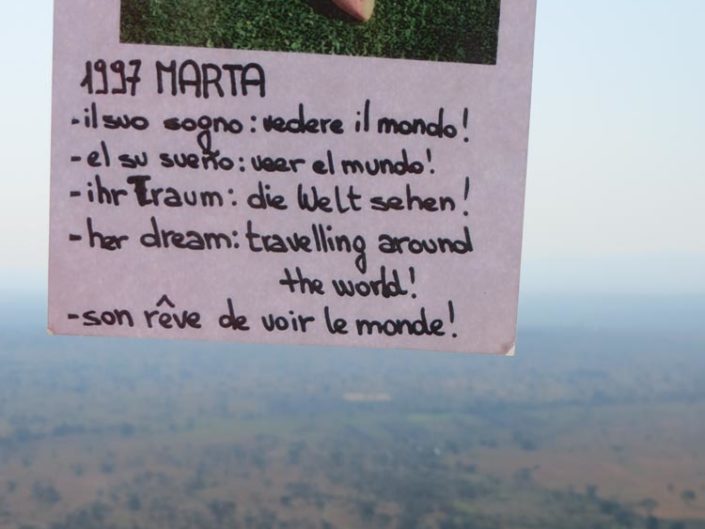 1997 MARTA
- il suo sogno: vedere il mondo!
- el su sueño: veer el mundo!
- ihr Traum: die Welt sehen!
- her dream: travelling around
the world!
- son rêve de voir le monde!